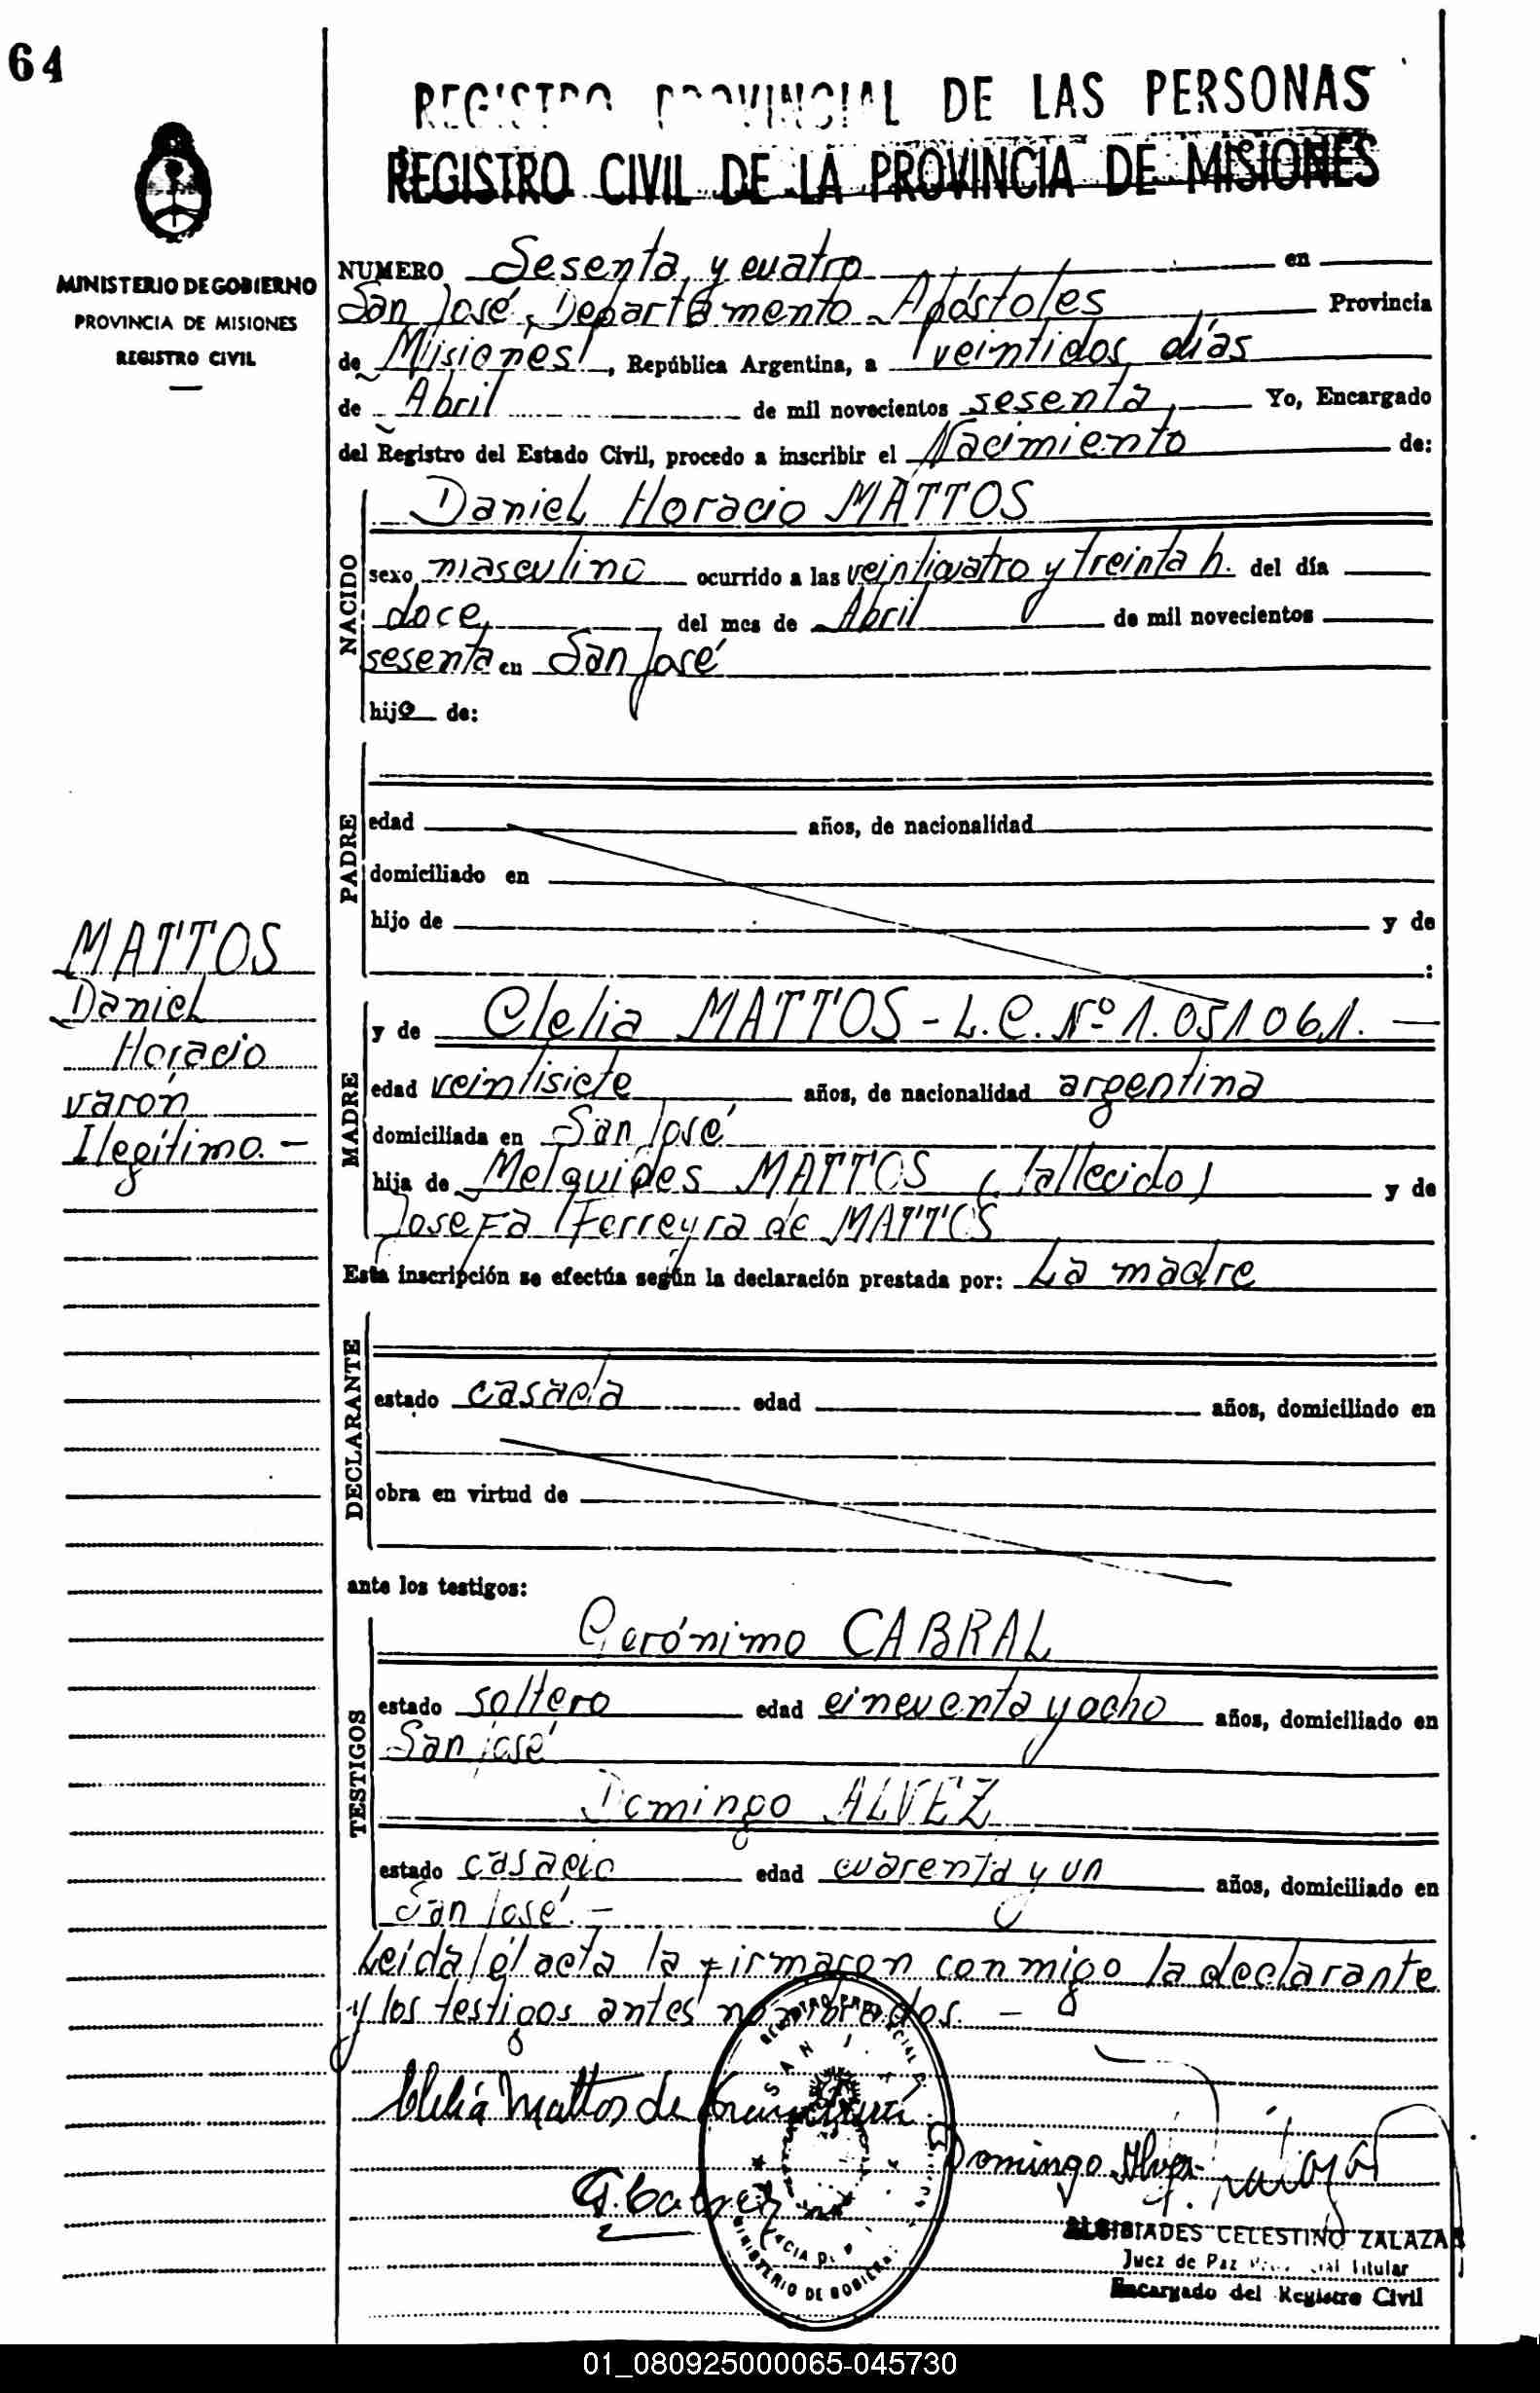 64
REGISTRO PROVINCIAL DE LAS PERSONAS
REGISTRO CIVIL DE LA PROVINCIA DE MISIONES
MINISTERIO DE GOBIERNO
PROVINCIA DE MISIONES
REGISTRO CIVIL
NUMERO Sesenta y cuatro en
San José, Departamento Apóstoles Provincia
de Misiones, República Argentina, a veintidos días
de Abril de mil novecientos sesenta, Yo, Encargado
del Registro del Estado Civil, procedo a inscribir el Nacimiento de:
NACIDO
Daniel Horacio MATTOS
sexo masculino ocurrido a las veinticuatro y treinta h. del día
doce, del mes de Abril de mil novecientos
sesenta en San José
hijo de:
PADRE
edad años, de nacionalidad
domiciliado en
hijo de y de
:
MATTOS
Daniel
Horacio
varón
Ilegítimo.-
MADRE
y de Clelia MATTOS - L.C. Nº 1.051061.-
edad veintisiete años, de nacionalidad argentina
domiciliada en San José
hija de Melquides MATTOS (fallecido) y de
Josefa Ferreyra de MATTOS
Esta inscripción se efectúa según la declaración prestada por: La madre
DECLARANTE
estado casada edad años, domiciliado en
obra en virtud de
ante los testigos:
TESTIGOS
Gerónimo CABRAL
estado soltero edad cincuenta y ocho años, domiciliado en
San josé
Domingo ALVEZ
estado casado edad cuarenta y un años, domiciliado en
San José.-
Leída el acta la firmaron conmigo la declarante
y los testigos antes nombrados.-
Clelia Mattos de
Domingo Alvez
G. Cabral
SAN J
MINISTERIO DE GOBIERNO
ALCIBIADES CELESTINO ZALAZAR
Juez de Paz Titular
Encargado del Registro Civil
01_080925000065-045730